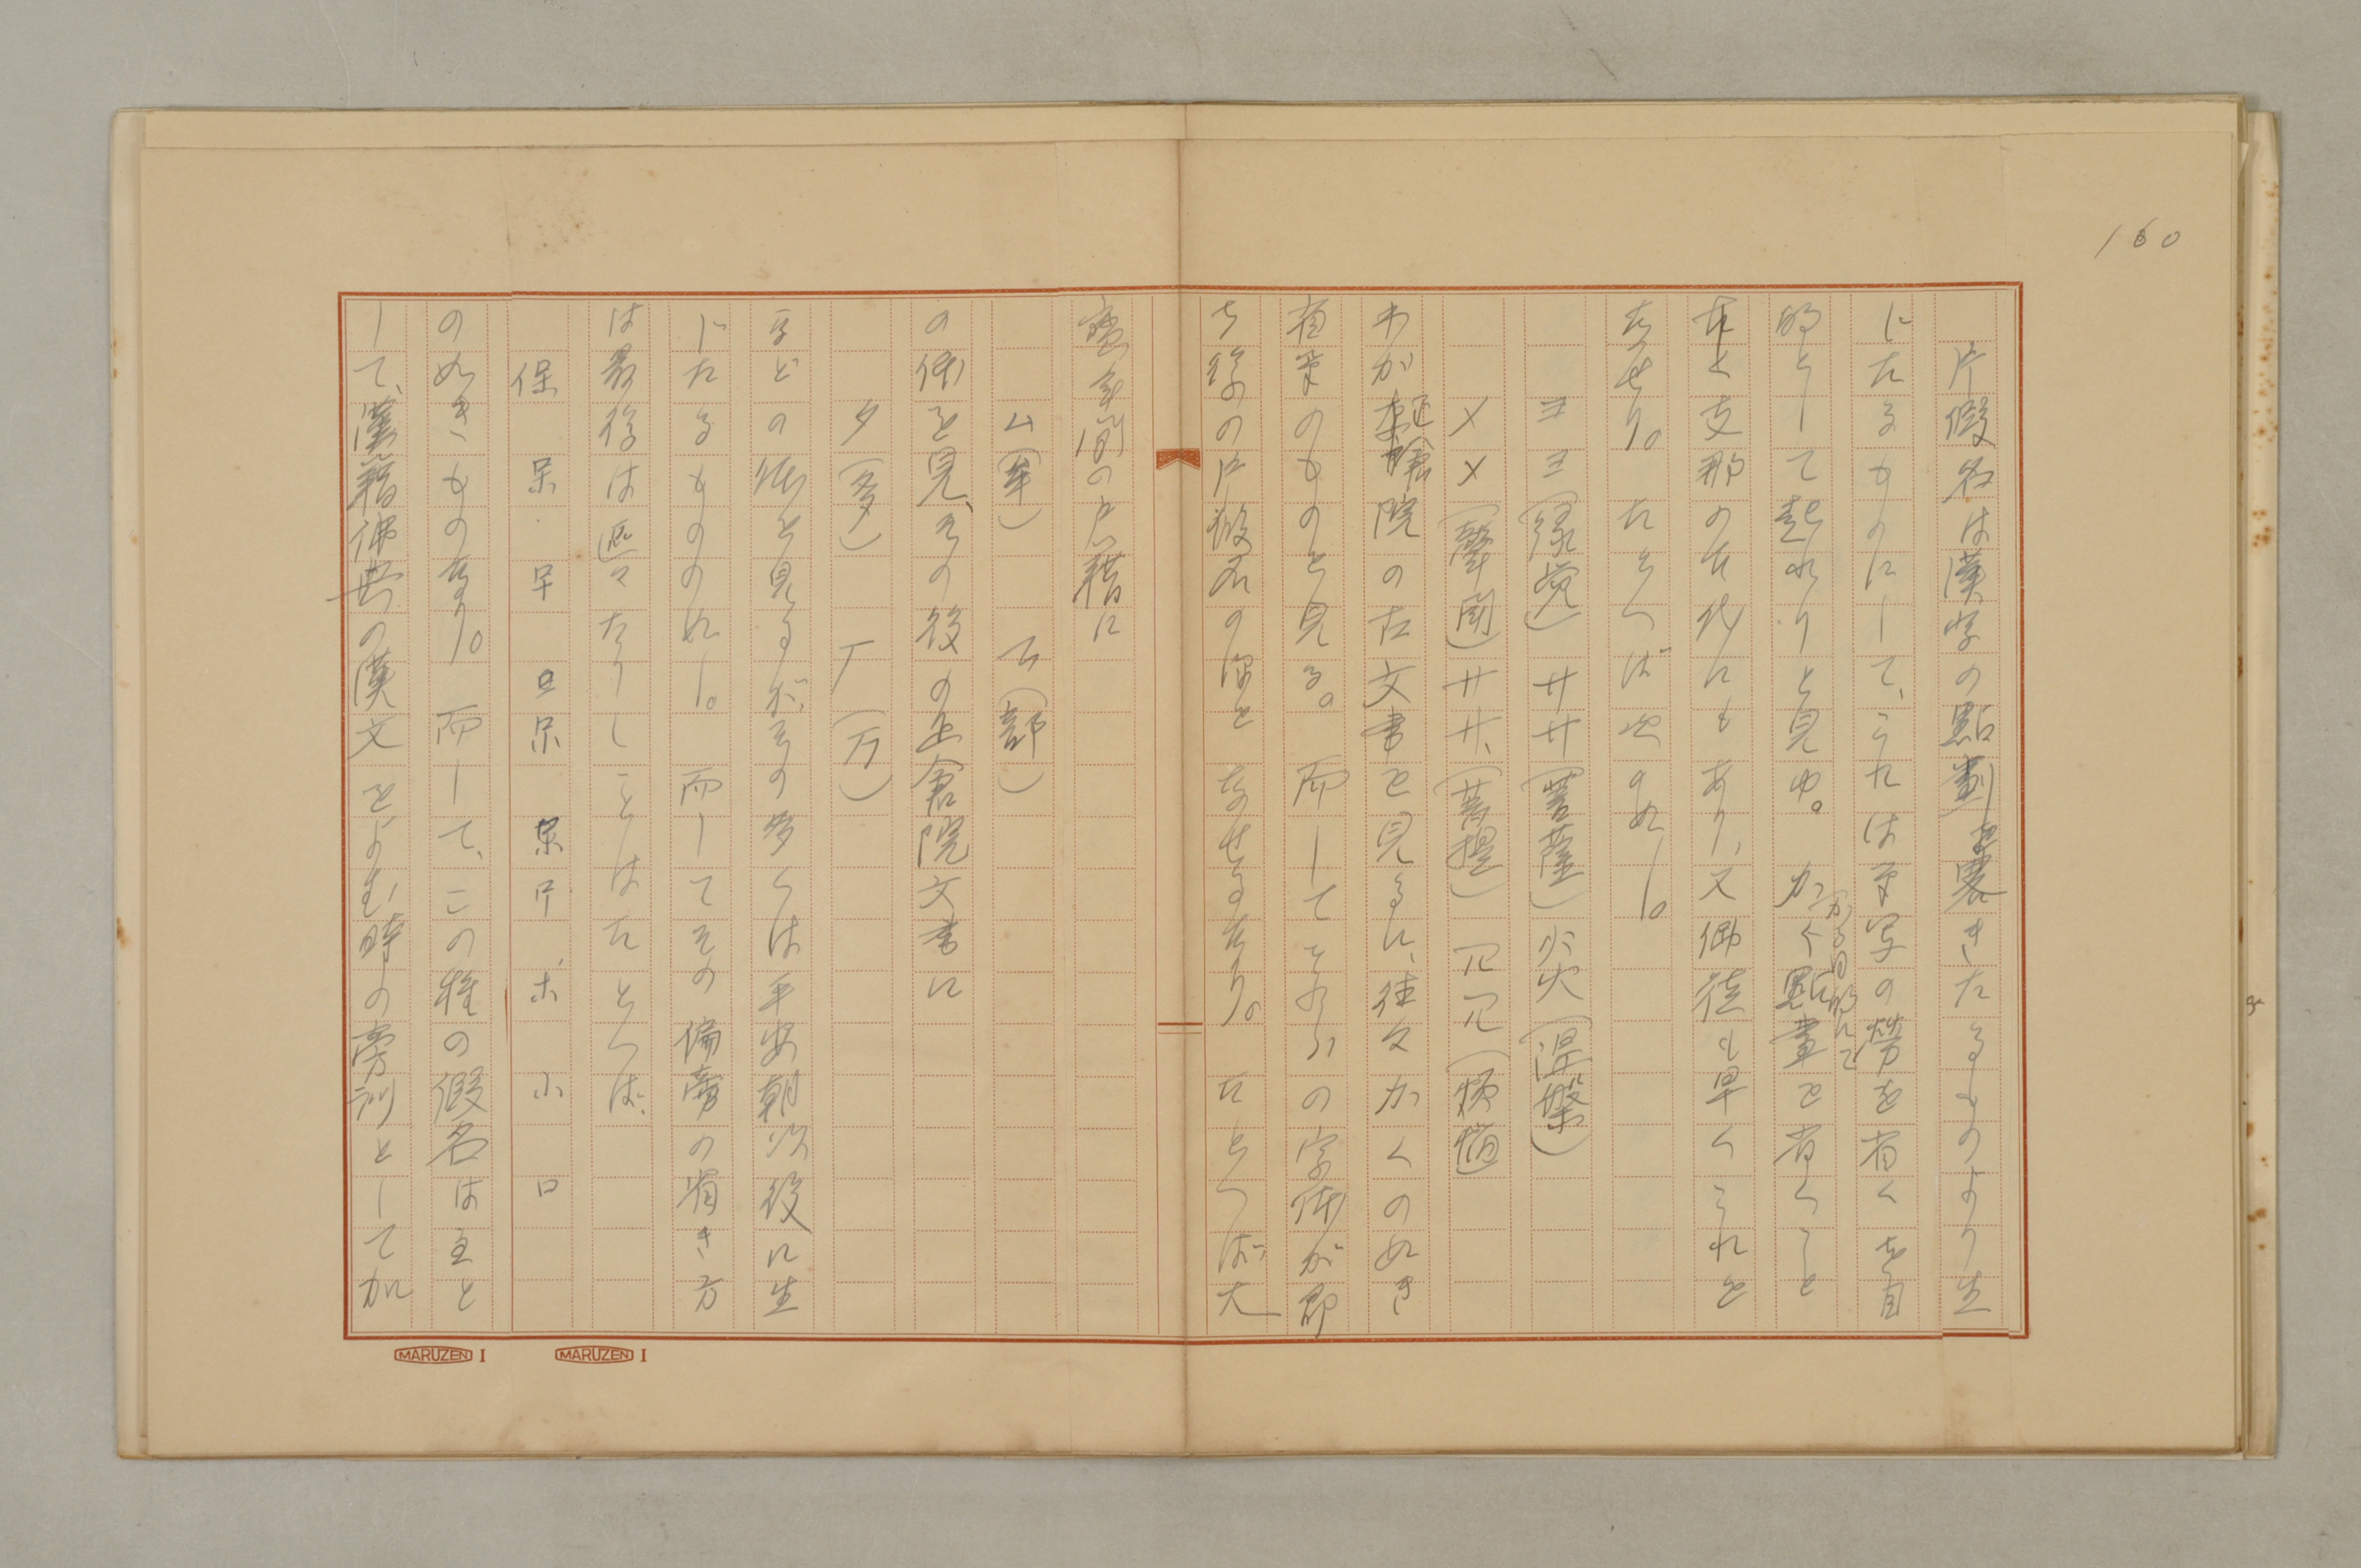 160
片假名は漢字の點劃を畧きたるものより生
じたるものにして、これは筆写の勞を省くを目
的として起れりと見ゆ。かく點畫を省くこと
かゝる目的にて
支那の古代にもあり、又佛徒も早くこれを
なせり。たとへば次の如し。
ヨヨ(縁覚)廾廾(菩薩)炎(涅槃)
メメ(聲聞)廾廾、(菩提)
わが正倉院の古文書を見るに、往々かくの如き
省筆のものを見る。而してそれらの字体が即
ち後の片假名の源を なせるなり。たとへば大
寶年間の戸籍に
ム(牟) ア(部)
の体を見、その後の正倉院文書に
タ(多) 丁(万)
などの体を見るが、その多くは平安朝以後に生
じたるものの如し。而してその偏旁の省き方
は最後は區々たりしことはたとへば、
保 呆 早 口 呆 呆 口 ホ 小 口
の如きものなり。而して、この種の假名は主と
して、漢籍佛典の漢文をよむ時の旁訓として加
MARUZEN I
MARUZEN I